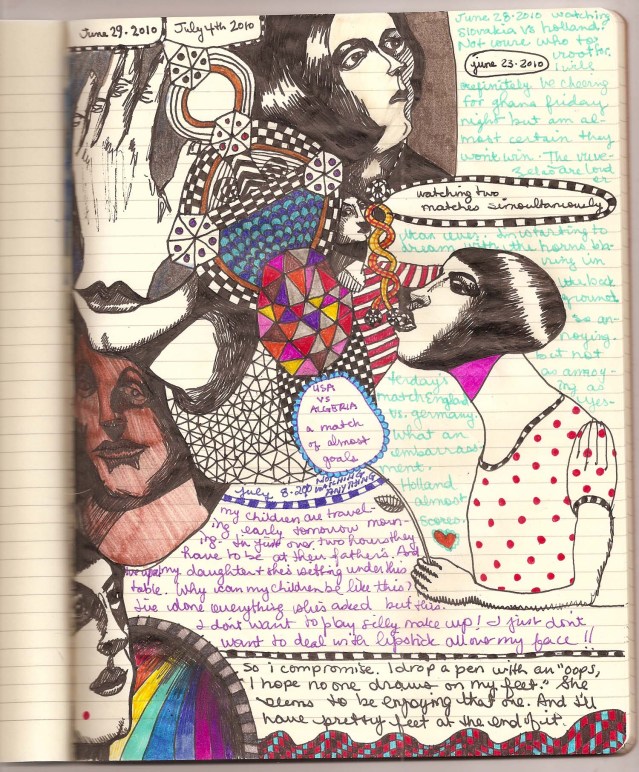 June 29. 2010
July 4th 2010
June 28. 2010 watching
Slovakia vs holland.
Not course who to
root for.
june 23. 2010
I will
definitely be cheering
for ghana friday
night but am al-
most certain they
won't win. The vuve-
zelas are loud
or
watching two
matches simoultaniously
mean ones. I'm starting to
dream with the horns bla-
ring in
the back
ground
so an-
noying.
but not
as annoy-
ing as
yes-
terday's
match England
vs. germany.
What an
embarrass
ment.
Holland
almost
scores.
USA
VS
ALGERIA
a match
of almost
goals
July 8. 2010
NOT WATCHING ANYTHING
my children are travel-
ing early tomorrow morn-
ing. In just over two hours they
have to be at their father's. And
my daughter + she's setting under this
table. Why can my children be like this?
I've done everything she's asked but this.
I don't want to play silly make up! I just don't
want to deal with lipstick all over my face !!
So i compromise. I drop a pen with an "oops,
I hope no one draws on my feet." She
seems to be enjoying that one. And I'll
have pretty feet at the end of it.